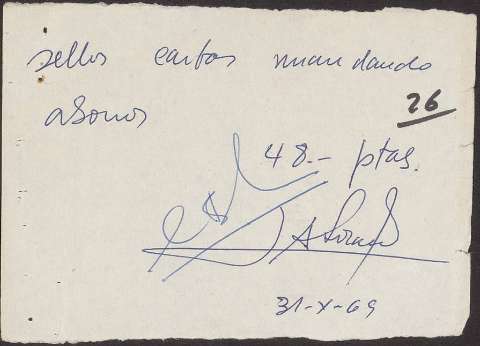 sellos cartas mandando
26
abonos
48.- ptas.
31-X-69